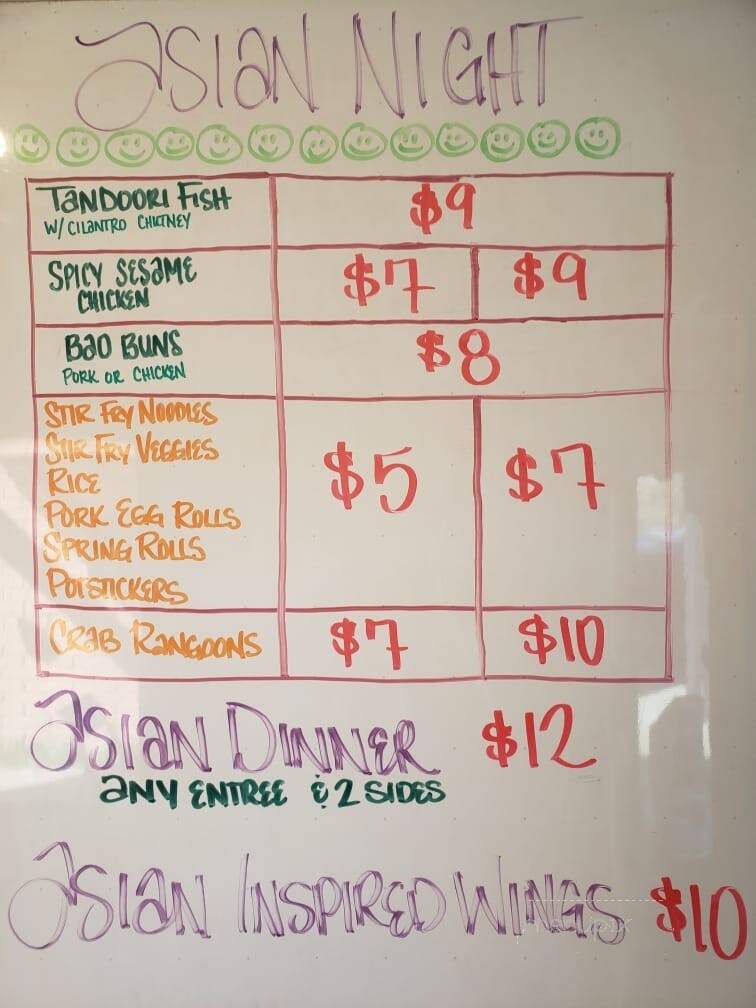 ASIAN NIGHT
TANDOORI FISH $9
W/ CILANTRO CHUTNEY
SPICY SESAME $7 $9
CHICKEN
BAO BUNS $8
PORK OR CHICKEN
STIR FRY NOODLES
STIR FRY VEGGIES
RICE $5 $7
PORK EGG ROLLS
SPRING ROLLS
POTSTICKERS
CRAB RANGOONS $7 $10
ASIAN DINNER $12
ANY ENTREE & 2 SIDES
ASIAN INSPIRED WINGS $10